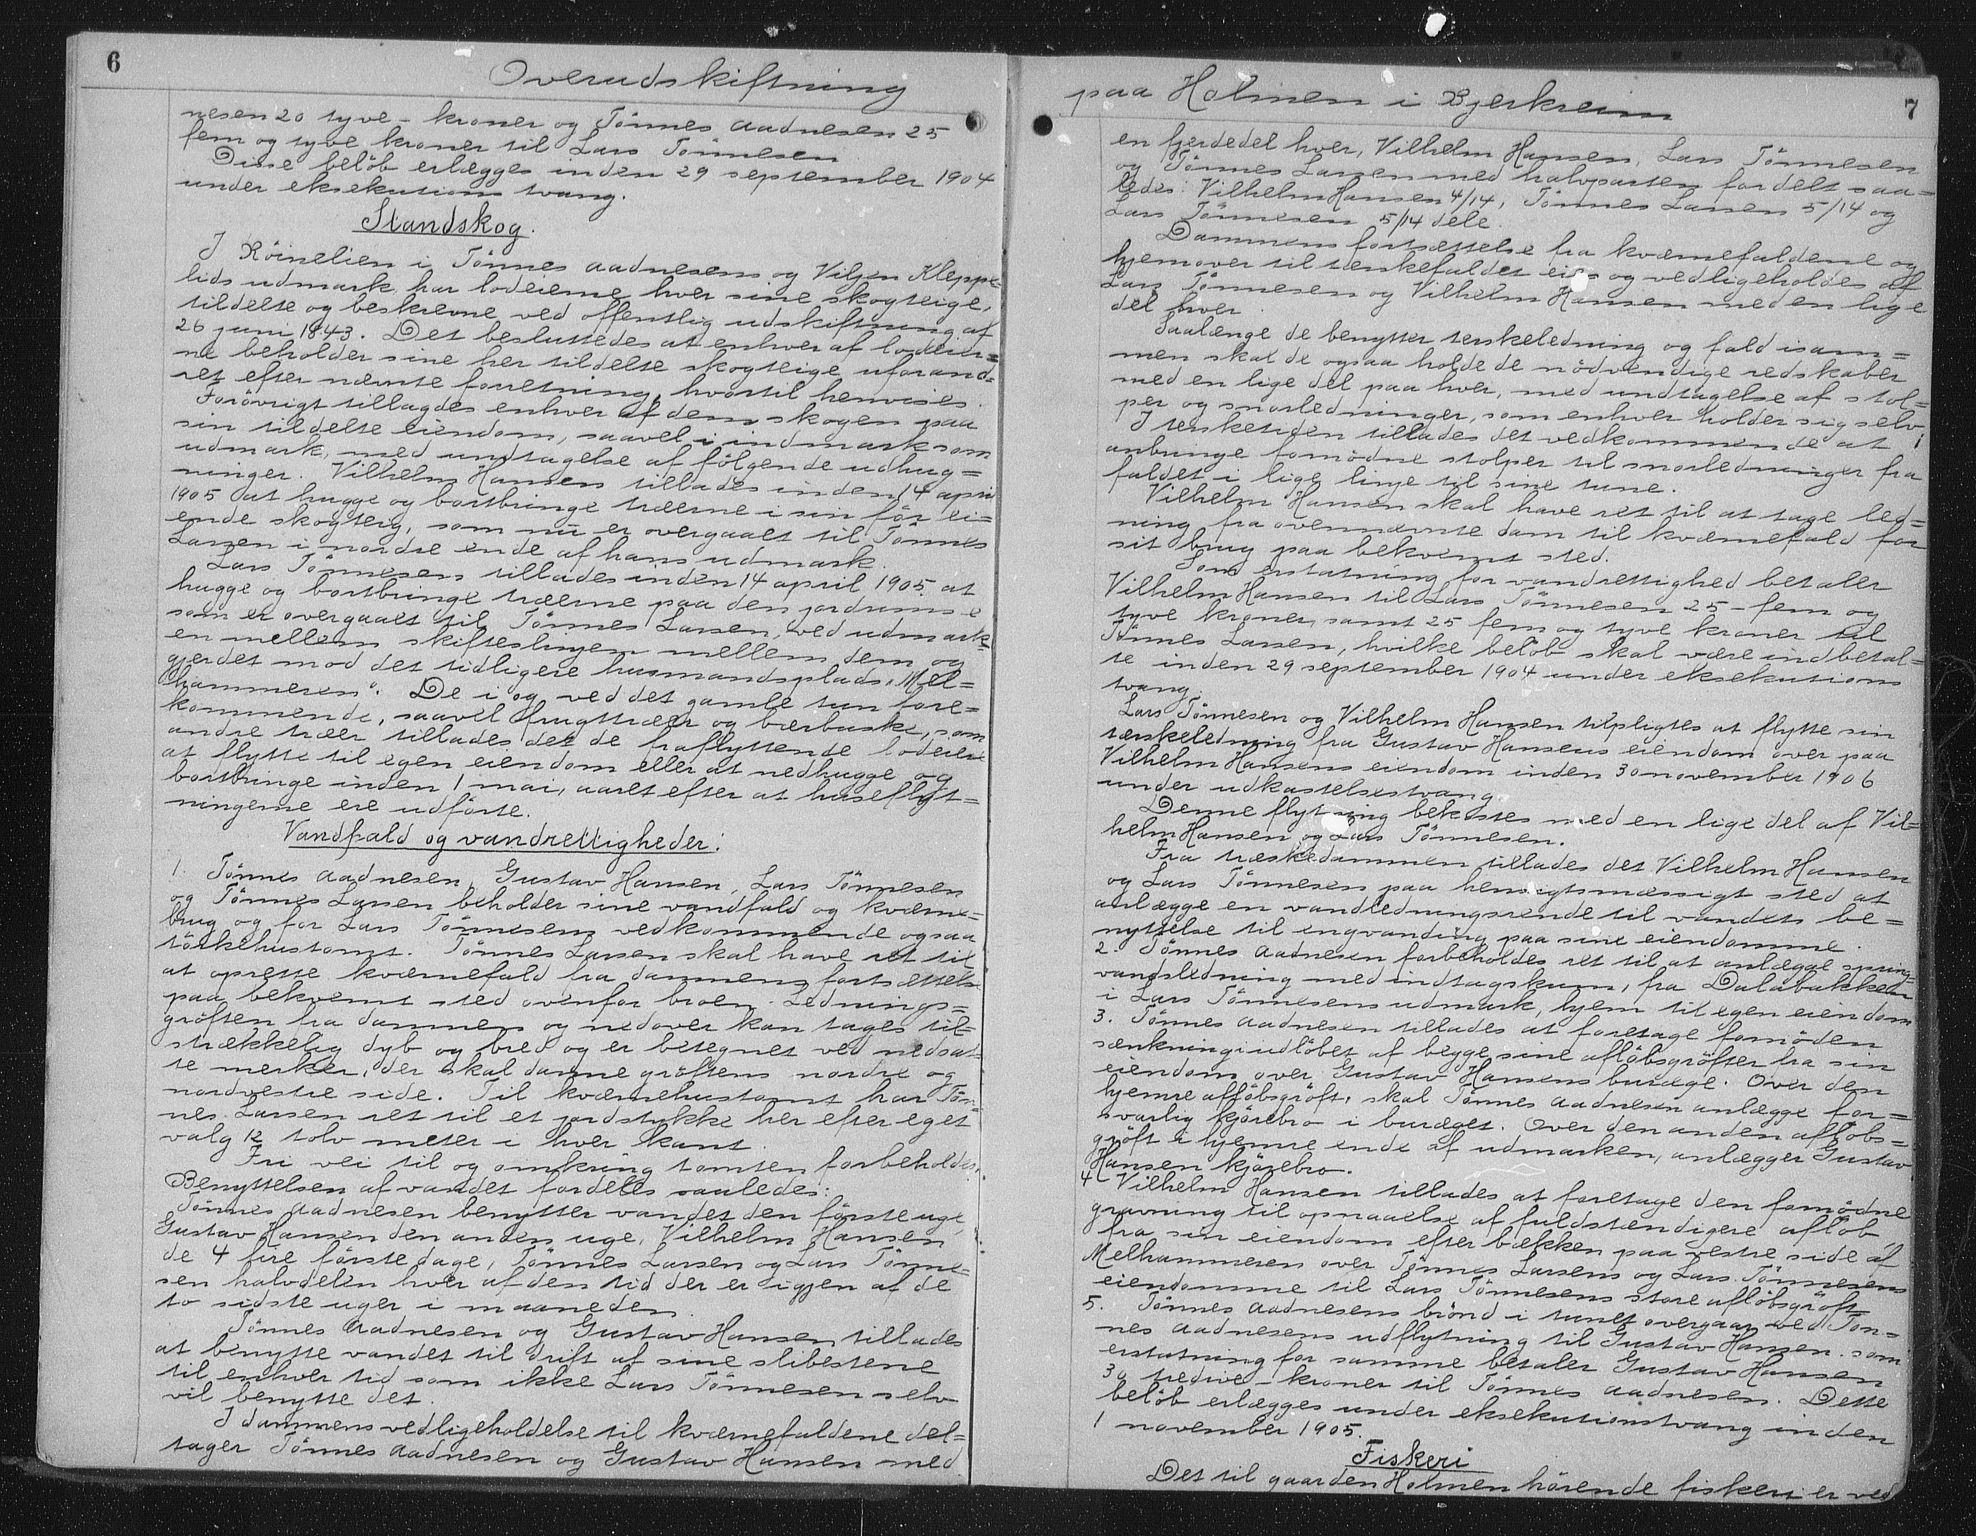 6
Overudskiftning
nesen 20 tyve - kroner og Tönnes Aadnesen 25
fem og tyve kroner til Lars Tönnesen
Disse belöb erlægges inden 29 september 1904
under eksekutions tvang.
Standskog.
I Röinelien i Tönnes Aadnesens og Viljen Kleppe-
lids udmark, har lodeierne hver sine skogteige,
tildelte og beskrevne ved offentlig udskiftning af
26 juni 1843. Det besluttedes at enhver af lodeier=
ne beholder sine her tildelte skogteige uforand=
ret efter nævnte forretning, hvortil henvises.
Forövrigt tillagdes enhver af dem skogen paa
sin tildelte eiendom, saavel i indmark som
udmark, med undtagelse af fölgende udhug=
ninger. Vilhelm Hansen tillades inden 14 april
1905 at hugge og bortbringe træerne i sin för ei=
ende skogteig, som nu er overgaaet til Tönnes
Larsen i nordre ende af hans udmark.
Lars Tönnesen tillades inden 14 april 1905 at
hugge og bortbringe træerne paa den jordrem
som er overgaaet til Tönnes Larsen, ved udmark=
en mellem skifteslinjen mellem dem og
gjerdet mod det tidligere husmandsplads „Mel=
hammeren“. De i og ved det gamle tun fore=
kommende, saavel frugttræer og bærbuske, som
andre træer tillades det de fraflyttende lodeiere
at flytte til egen eiendom eller at nedhugge og
bortbringe inden 1 mai, aaret efter at huseflyt=
ningerne ere udförte.
Vandfald og vandrettigheder:
1. Tönnes Aadnesen, Gustav Hansen, Lars Tönnesen
og Tönnes Larsen beholder sine vandfald og kværne=
brug og for Lars Tönnesens vedkommende ogsaa
törkehustomt. Tönnes Larsen skal have ret til
at oprette kværnefald fra dammens fortsættelse
paa bekvemt sted ovenfor broen. Lednings=
gröften fra dammen og nedover kan tages til=
strækkelig dyb og bred og er betegnet ved nedsat=
te merker, der skal danne gröftens nordre og
nordvestre side. Til kværnehustomt har Tön=
nes Larsen ret til et jordstykke her efter eget
valg 12 tolv meter i hver kant.
Fri vei til og omkring tomten forbeholdes.
Benyttelsen af vandet fordeles saaledes:
Tönnes Aadnesen benytter vandet den förste uge,
Gustav Hansen den anden uge, Vilhelm Hansen
de 4 fire förstedage, Tönnes Larsen og Lars Tönne=
sen halvdelen hver af den tid der er igjen af de
to sidste uger i maaneden.
Tönnes Aadnesen og Gustav Hansen tillades
at benytte vandet til drift af sine slibestene
til enhver tid som ikke Lars Tönnesen selv
vil benytte det.
I dammens vedligeholdelse til kværnefaldene del=
tager Tönnes Aadnesen og Gustav Hansen med
paa Holmen i Bjerkreim
7
en fjerdedel hver, Vilhelm Hansen, Lars Tönnesen
og Tönnes Larsen med halvparten fordelt saa=
ledes: Vilhelm Hansen 4/14, Tönnes Larsen 5/14 og
Lars Tönnesen 5/14 dele.
Dammens fortsættelse fra kværnefaldene og
hjemover til tærskefaldet eies og vedligeholdes af
Lars Tönnesen og Vilhelm Hansen med en lige
del hver.
Saalænge de benytter terskeledning og fald isam=
men skal de ogsaa holde de nödvendige redskaber
med en lige del paa hver, med undtagelse af stol=
per og snorledninger, som enhver holder sig selv i
I tersketiden tillades det vedkommende at
anbringe fornödne stolper til snorledninger fra
faldet i lige linje til sine tune.
Vilhelm Hansen skal have ret til at tage led=
ning fra ovennævnte dam til kværnefald for
sit brug paa bekvemt sted.
Som erstatning for vandrettighed betaler
Vilhelm Hansen til Lars Tönnesen 25 - fem og
tyve kroner, samt 25 fem og tyve kroner til
Tönnes Larsen, hvilke belöb skal være indbetal=
te inden 29 september 1904 under eksekutions
tvang.
Lars Tönnesen og Vilhelm Hansen tilpligtes at flytte sin
tærskeledning fra Gustav Hansens eiendom over paa
Vilhelm Hansens eiendom inden 30 november 1906
under udkastelsestvang.
Denne flytning bekostes med en lige del af Vil=
helm Hansen og Lars Tönnesen.
Fra træskedammen tillades det Vilhelm Hansen
og Lars Tönnesen paa hensigtsmæssigt sted at
anlægge en vandledningsrende til vandets be=
nyttelse til engvanding paa sine eiendomme.
2. Tönnes Aadnesen forbeholdes ret til at anlægge spring=
vandsledning med indtagskum, fra Dalabakken
i Lars Tönnesens udmark, hjem til egen eiendom
3. Tönnes Aadnesen tillades at foretage fornöden
sænkning i udlöbet af begge sine aflöbsgröfter fra sin
eiendom over Gustav Hansens buræge. Over den
hjemre aflöbsgröft, skal Tönnes Aadnesen anlægge for=
svarlig kjörebro i buræget. Over den anden aflöbs=
gröft i hjemre ende af udmarken, anlægger Gustav
Hansen kjörebro.
4 Vilhelm Hansen tillades at foretage den fornödne
gravning til opnaaelse af fuldstændigere aflöb
fra sin eiendom efter bækken paa vestre side af
Melhammeren over Tönnes Larsens og Lars Tönnesens
eiendomme til Lars Tönnesens store aflöbsgröft
5. Tönnes Aadnesens brönd i tunet overgaar ved Tön=
nes Aadnesens udflytning til Gustav Hansen. som
erstatning for samme betaler Gustav Hansen
30 tredive - kroner til Tönnes Aadnesen. Dette
belöb erlægges under eksekutionstvang inden
1 november 1905.
Fiskeri
Det til gaarden Holmen hörende fiskeri er ved